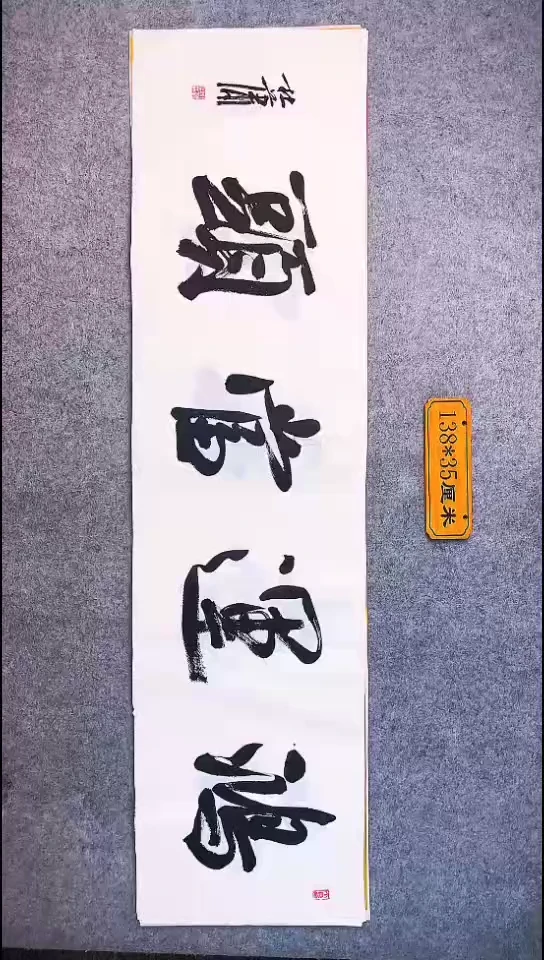 鴻運當頭
138*35厘米